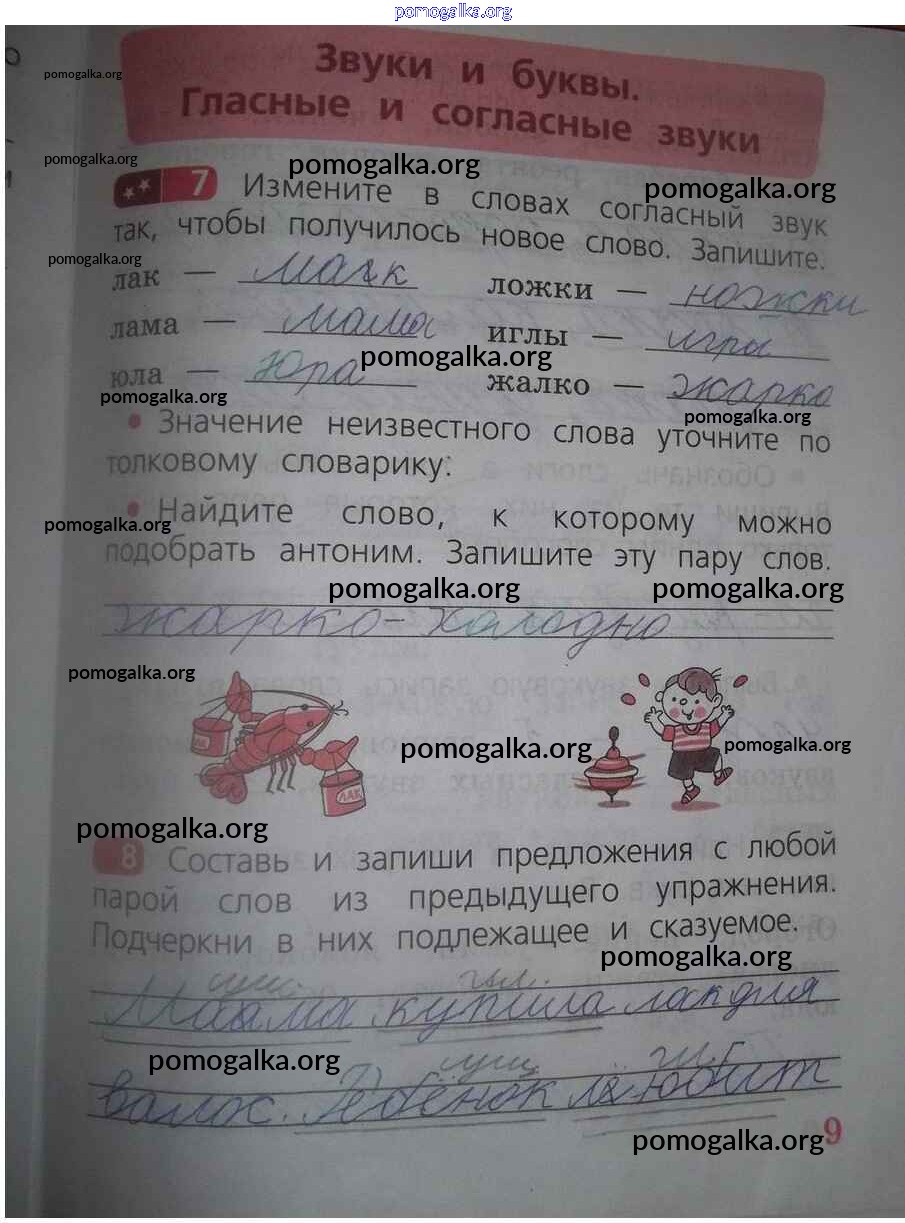 pomogalka.org
Звуки и буквы.
pomogalka.org
Гласные и согласные звуки
pomogalka.org
pomogalka.org
pomogalka.org
7 Измените в словах согласный звук
так, чтобы получилось новое слово. Запишите.
pomogalka.org
лак — мак ложки — ножки
лама — мама иглы — игры
pomogalka.org
юла — Юра жалко — жарко
pomogalka.org
pomogalka.org
• Значение неизвестного слова уточните по
толковому словарику:
• Найдите слово, к которому можно
pomogalka.org
подобрать антоним. Запишите эту пару слов.
pomogalka.org
pomogalka.org
жарко - холодно
pomogalka.org
ЛАК
ЛАК
pomogalka.org
pomogalka.org
pomogalka.org
8 Составь и запиши предложения с любой
парой слов из предыдущего упражнения.
Подчеркни в них подлежащее и сказуемое.
pomogalka.org
сущ. гл.
Мама купила лак для
pomogalka.org
сущ гл.
валос. Ребёнок любит
pomogalka.org
9